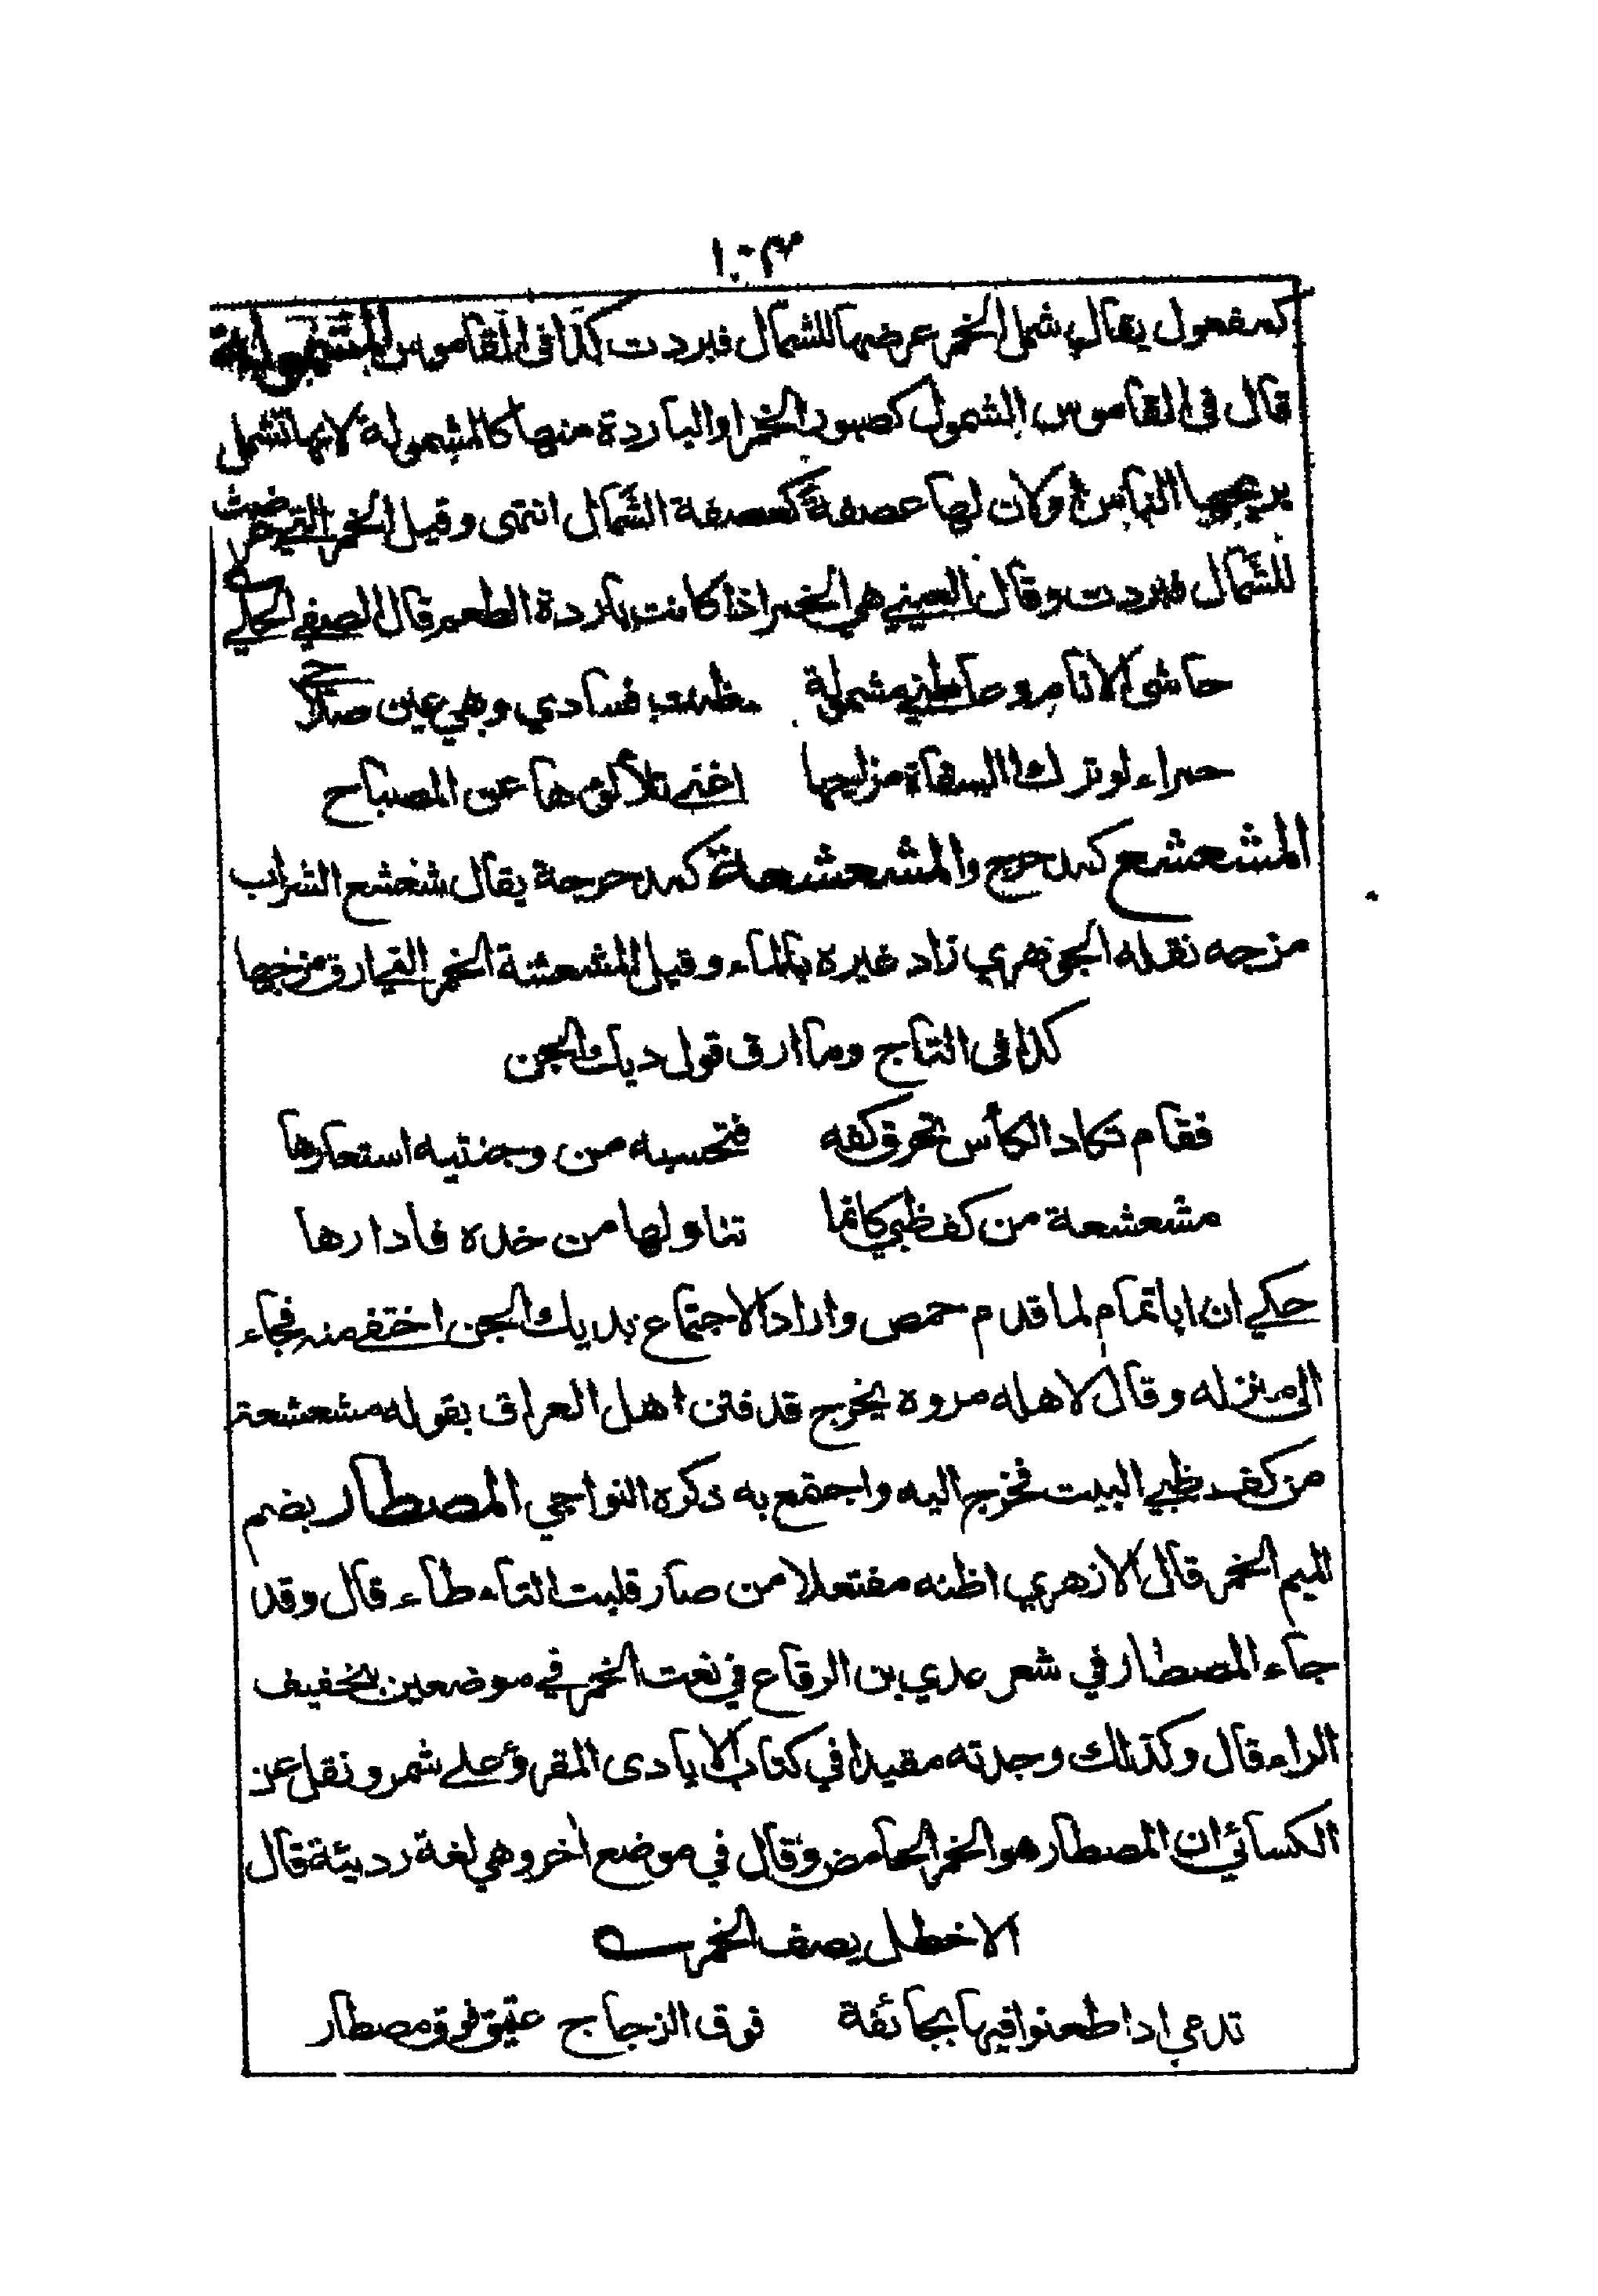 ١٠٣
كمفعول يقال شمل الخمر عرضها للشمال فبردت كذا فى القاموس المشمولة
قال فى القاموس الشمول كصبور الخمر او الباردة منها كالمشمولة لانها تشمل
بريحها الناس او لان لها عصفة كعصفة الشمال انتهى وقيل الخمر التي عرضت
للشمال فبردت وقال العيني هي الخمر اذا كانت باردة الطعم قال الصفي الحلي
حاشى الانام وعاطني مشمولة ظلت فسادي وهي عين صلاح
حمراء لو ترك السقاة مزاجها اغنى تلألؤها عن المصباح
المشعشع كمدحرج والمشعشعة كمدحرجة يقال شعشع الشراب
مزجه نقله الجوهري زاد غيره بالماء وقيل المشعشعة الخمر التي ارق مزجها
كذا فى التاج وما ارق قول ديك الجن
فقام تكاد الكأس تحرق كفه فتحسبه من وجنتيه استعارها
مشعشعة من كف ظبي كانما تناولها من خده فادارها
حكي ان اباتمام لما قدم حمص واراد الاجتماع بديك الجن اختفى منه فجاء
الى منزله وقال لاهله مروه يخرج قد فتن اهل العراق بقوله مشعشعة
من كف ظبي البيت فخرج اليه واجتمع به ذكره النواجي المصطار بضم
الميم الخمر قال الازهري اظنه مفتعلا من صار قلبت التاء طاء قال وقد
جاء المصطار في شعر عدي بن الرقاع في نعت الخمر في موضعين بتخفيف
الراء قال وكذلك وجدته مقيدا في كتاب الايادى المقرؤ على شمر ونقل عن
الكسائي ان المصطار هو الخمر الحامض وقال في موضع اخر وهي لغة رديئة قال
الاخطل يصف الخمر
تدمى اذا طعنوا فيها بجائفة فوق الزجاج عتيق فوق مصطار